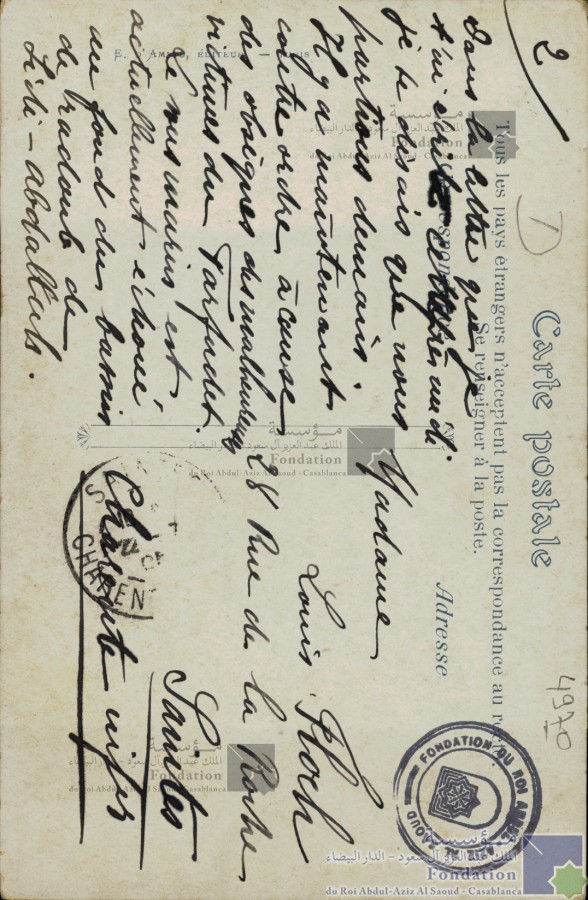 2
Carte postale
Tous les pays étrangers n'acceptent pas la correspondance au
Se renseigner à la poste.
Adresse
D
4970
Dans la lettre que je
t'ai
je te disais que nous
partions demain.
Il y a maintenant
contre ordre, à cause
des obsèques des malheureuses
victimes du Farfadet.
Le sous marin est
actuellement échoué
au fond du bassin
de radoub de
Sidi-abdallah.
Madame
Louis Floch
28 Rue de la Roche
Saintes
Charente infre
FONDATION DU ROI
مؤسسة
الملك عبد العزيز آل سعود - الدار البيضاء
Fondation
du Roi Abdul-Aziz Al Saoud - Casablanca